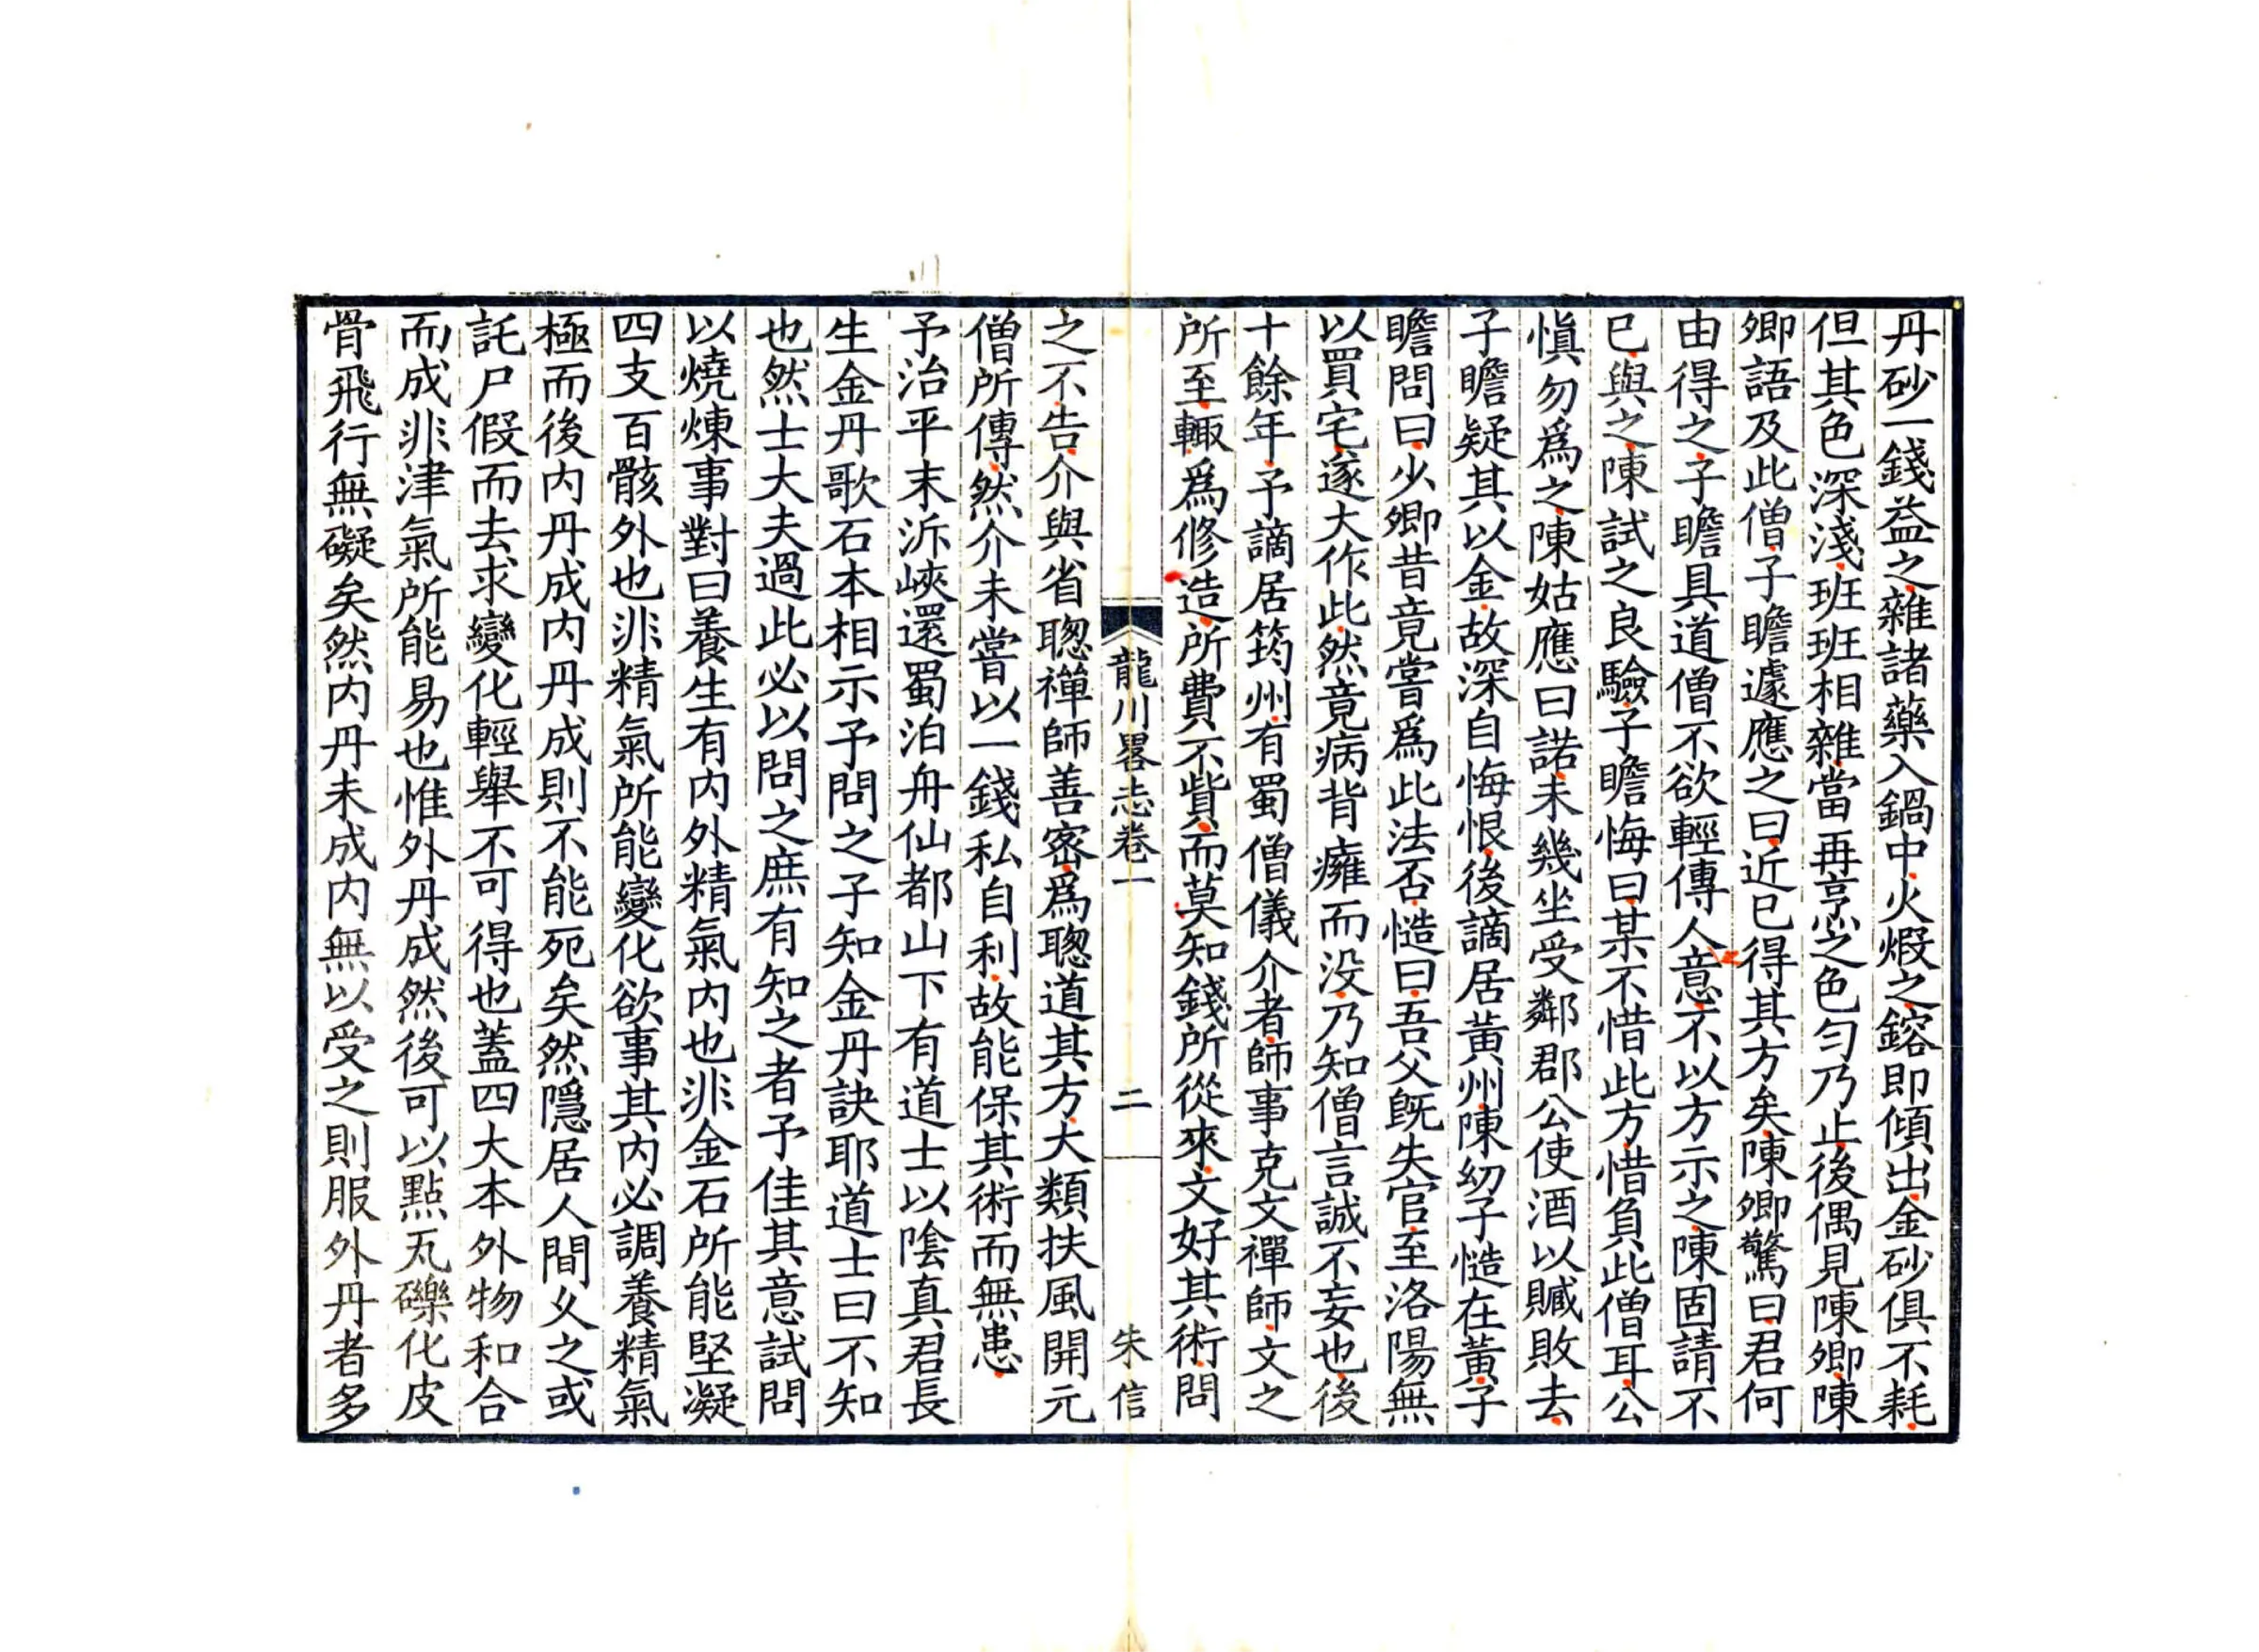 丹砂一錢益之雜諸藥入鍋中火煆之鎔即傾出金砂俱不耗
但其色深淺班班相雜當再亨之色勻乃止後偶見陳卿陳
卿語及此僧子瞻遽應之曰近已得其方矣陳卿驚曰君何
由得之子瞻具道僧不欲輕傳人意不以方示之陳固請不
已與之陳試之良驗子瞻悔曰某不惜此方惜負此僧耳公
愼勿爲之陳姑應曰諾未幾坐受鄰郡公使酒以贓敗去
子瞻疑其以金故深自悔恨後謫居黃州陳幼子慥在黃子
瞻問曰少卿昔竟嘗爲此法否慥曰吾父旣失官至洛陽無
以買宅遂大作此然竟病背癰而没乃知僧言誠不妄也後
十餘年予謫居筠州有蜀僧儀介者師事克文禪師文之
所至輙爲修造所費不貲而莫知錢所從來文好其術問
龍川畧志卷一
二
朱信
之不告介與省聰禪師善密爲聰道其方大類扶風開元
僧所傳然介未嘗以一錢私自利故能保其術而無患
予治平末泝峽還蜀泊舟仙都山下有道士以陰真君長
生金丹歌石本相示予問之子知金丹訣耶道士曰不知
也然士大夫過此必以問之庶有知之者予佳其意試問
以燒煉事對曰養生有内外精氣内也非金石所能堅凝
四支百骸外也非精氣所能變化欲事其内必調養精氣
極而後内丹成内丹成則不能死矣然隱居人間久之或
託尸假而去求變化輕舉不可得也蓋四大本外物和合
而成非津氣所能易也惟外丹成然後可以點瓦礫化皮
骨飛行無礙矣然内丹未成内無以受之則服外丹者多